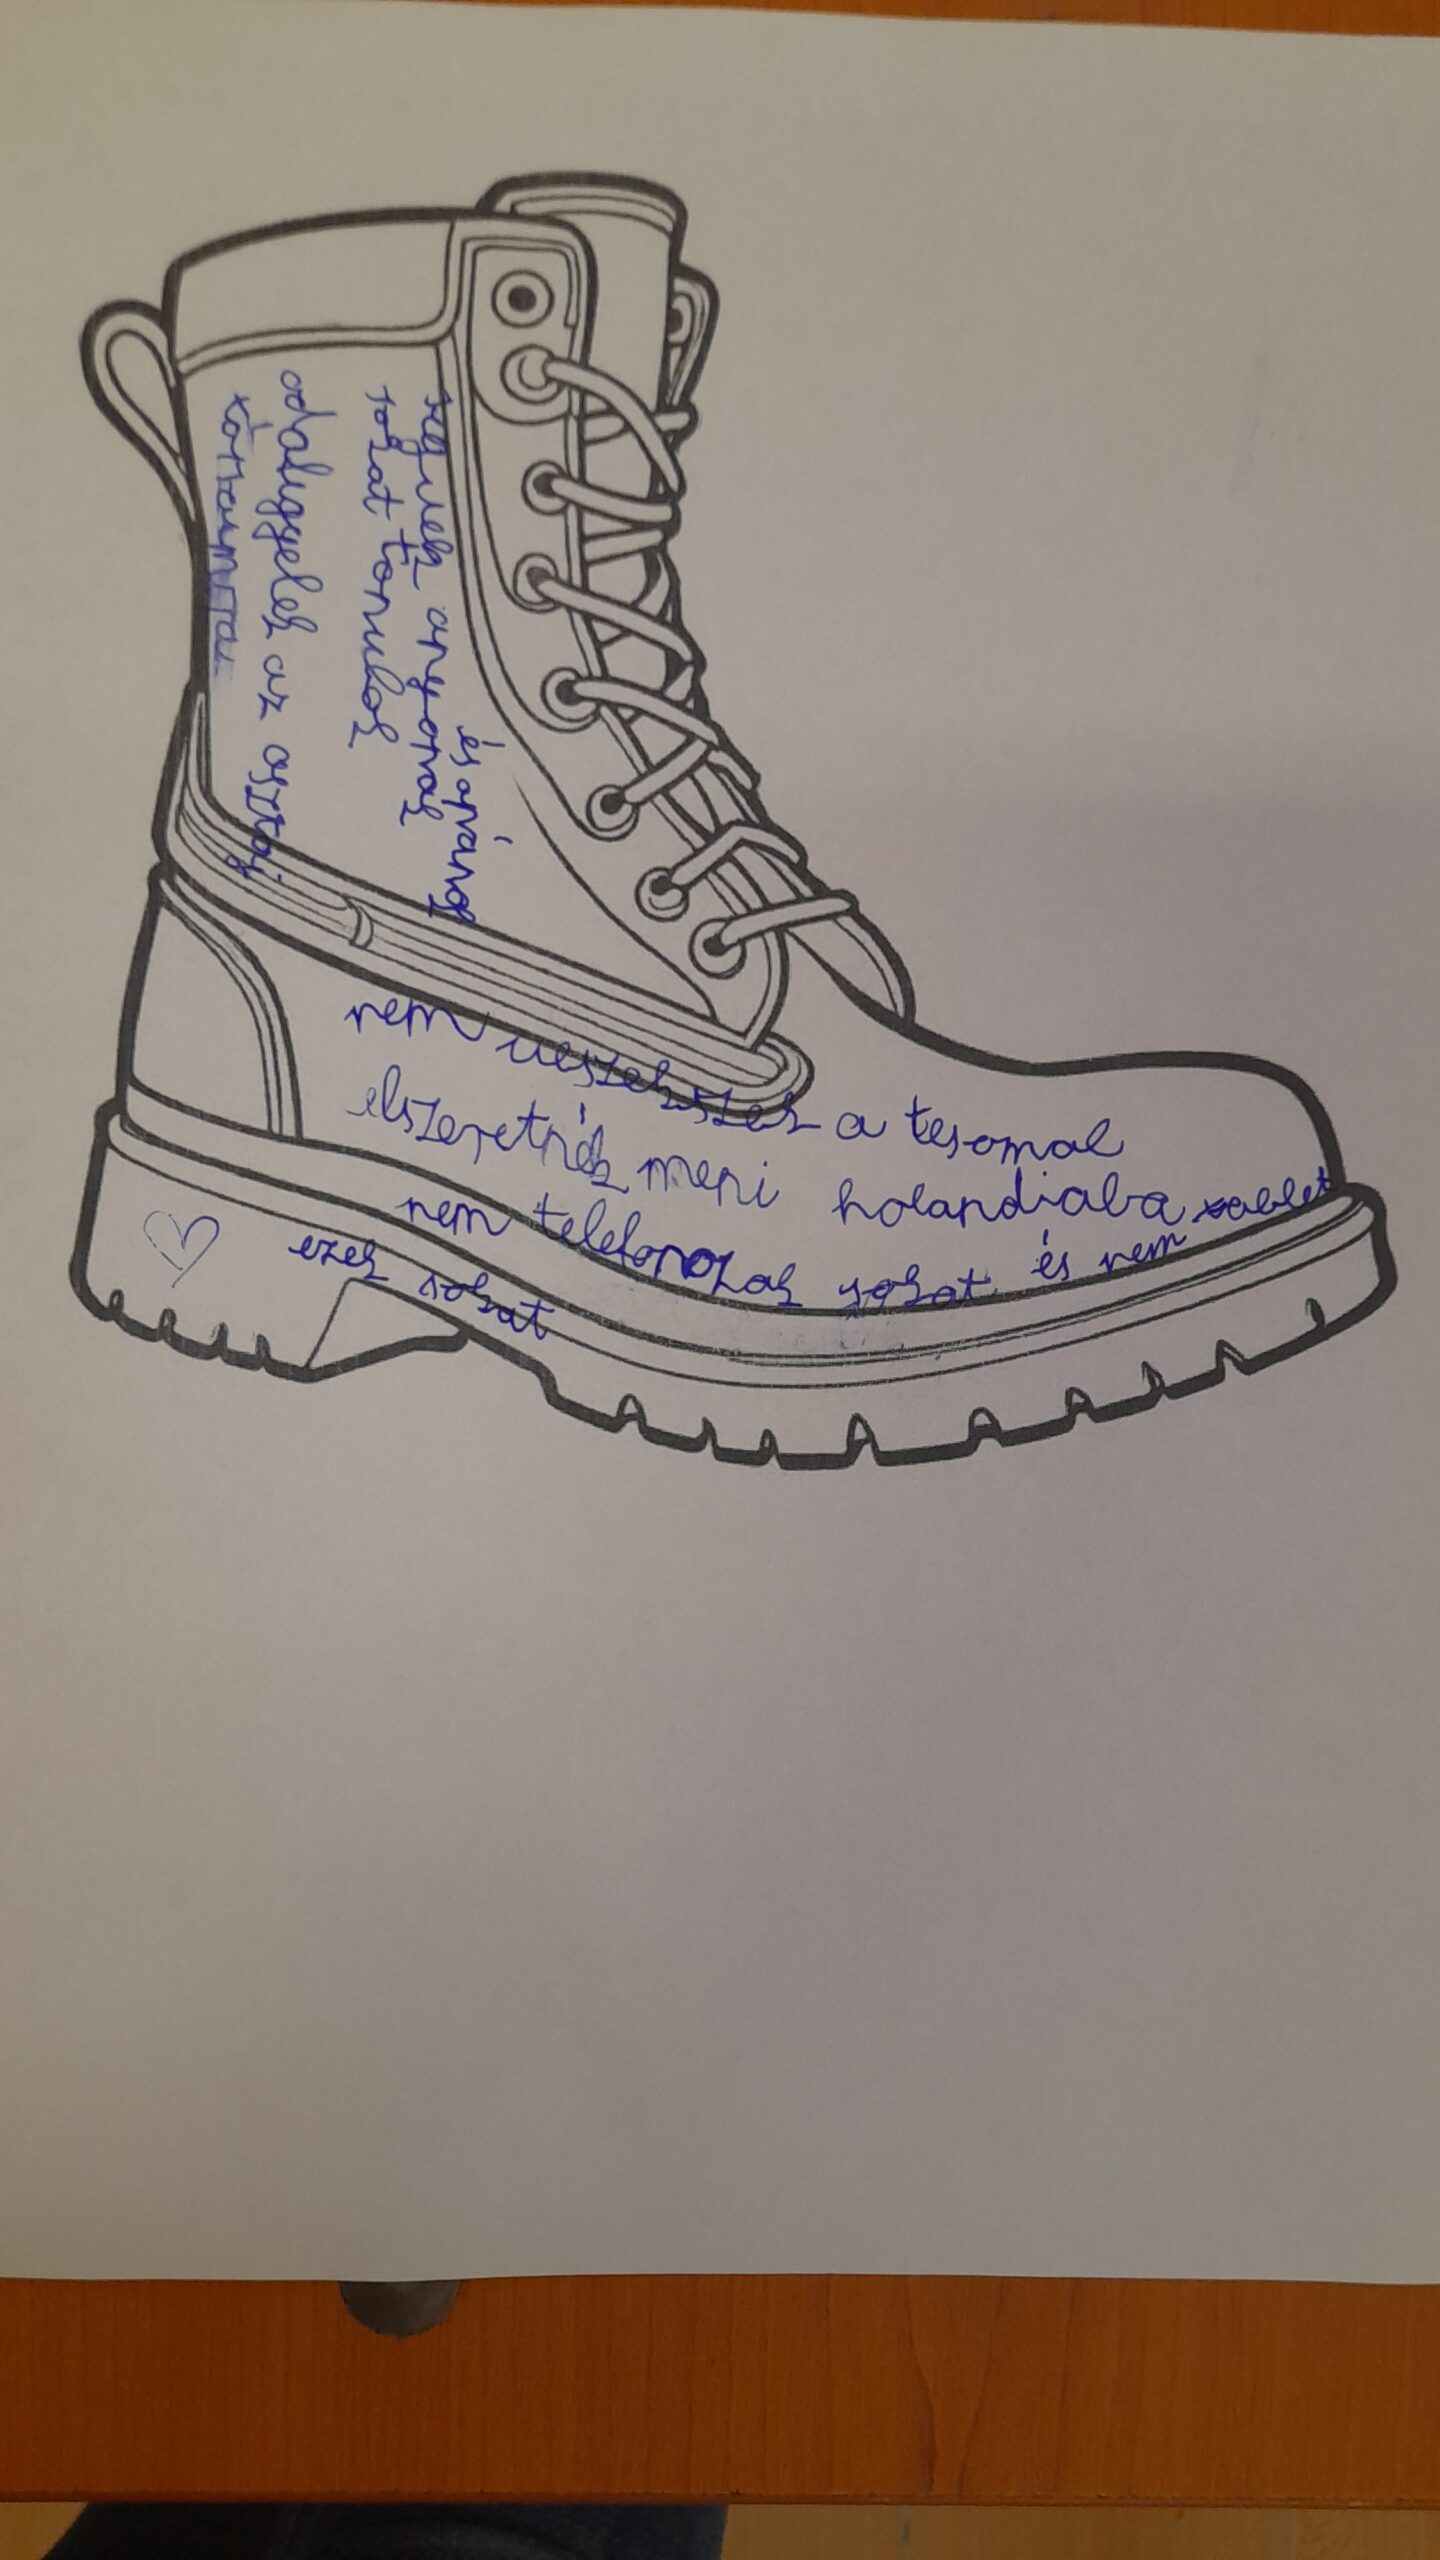 segitek anyonak
és apánok
sokat tonulok
odafigyelek az osztáj
nem veszekszek a tesomal
elszeretnék meni holandiaba
nem telefonozok sokat és nem tablet
ezek sokat